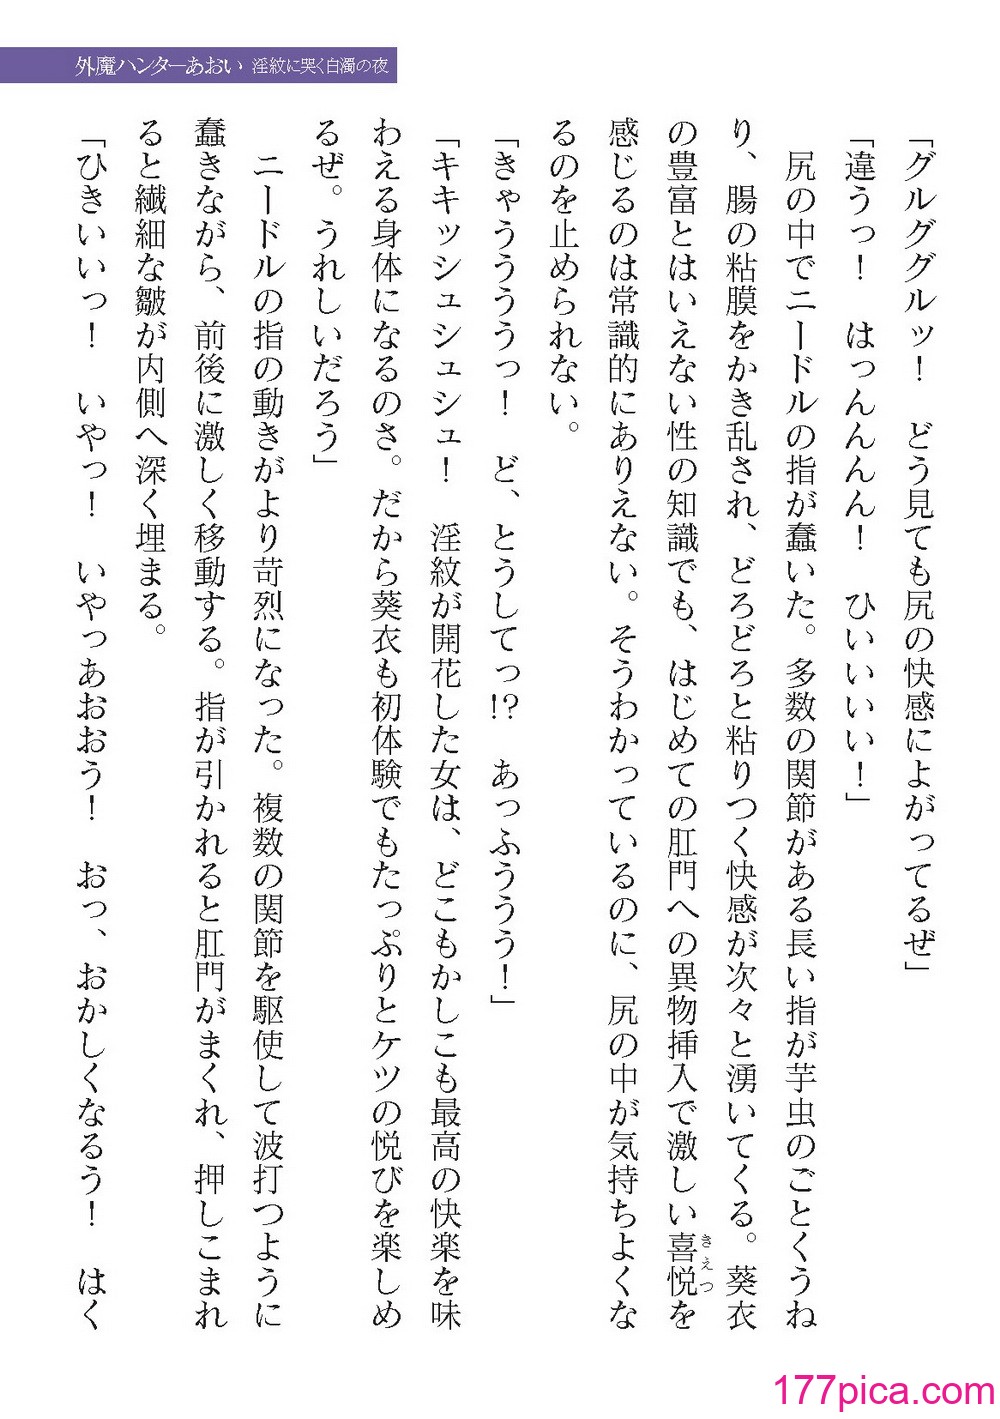 外魔ハンターあおい 淫紋に哭く白濁の夜
「グルググルッ！　どう見ても尻の快感によがってるぜ」
「違うっ！　はっんんん！　ひいいいい！」
　尻の中でニードルの指が蠢いた。多数の関節がある長い指が芋虫のごとくうね
り、腸の粘膜をかき乱され、どろどろと粘りつく快感が次々と湧いてくる。葵衣
の豊富とはいえない性の知識でも、はじめての肛門への異物挿入で激しい喜悦を
きえつ
感じるのは常識的にありえない。そうわかっているのに、尻の中が気持ちよくな
るのを止められない。
「きゃうううっ！　ど、とうしてっ!?　あっふううう！」
「キキッシュシュシュ！　淫紋が開花した女は、どこもかしこも最高の快楽を味
わえる身体になるのさ。だから葵衣も初体験でもたっぷりとケツの悦びを楽しめ
るぜ。うれしいだろう」
　ニードルの指の動きがより苛烈になった。複数の関節を駆使して波打つように
蠢きながら、前後に激しく移動する。指が引かれると肛門がまくれ、押しこまれ
ると繊細な皺が内側へ深く埋まる。
「ひきいいっ！　いやっ！　いやっあおおう！　おっ、おかしくなるう！　はく
177pica.com